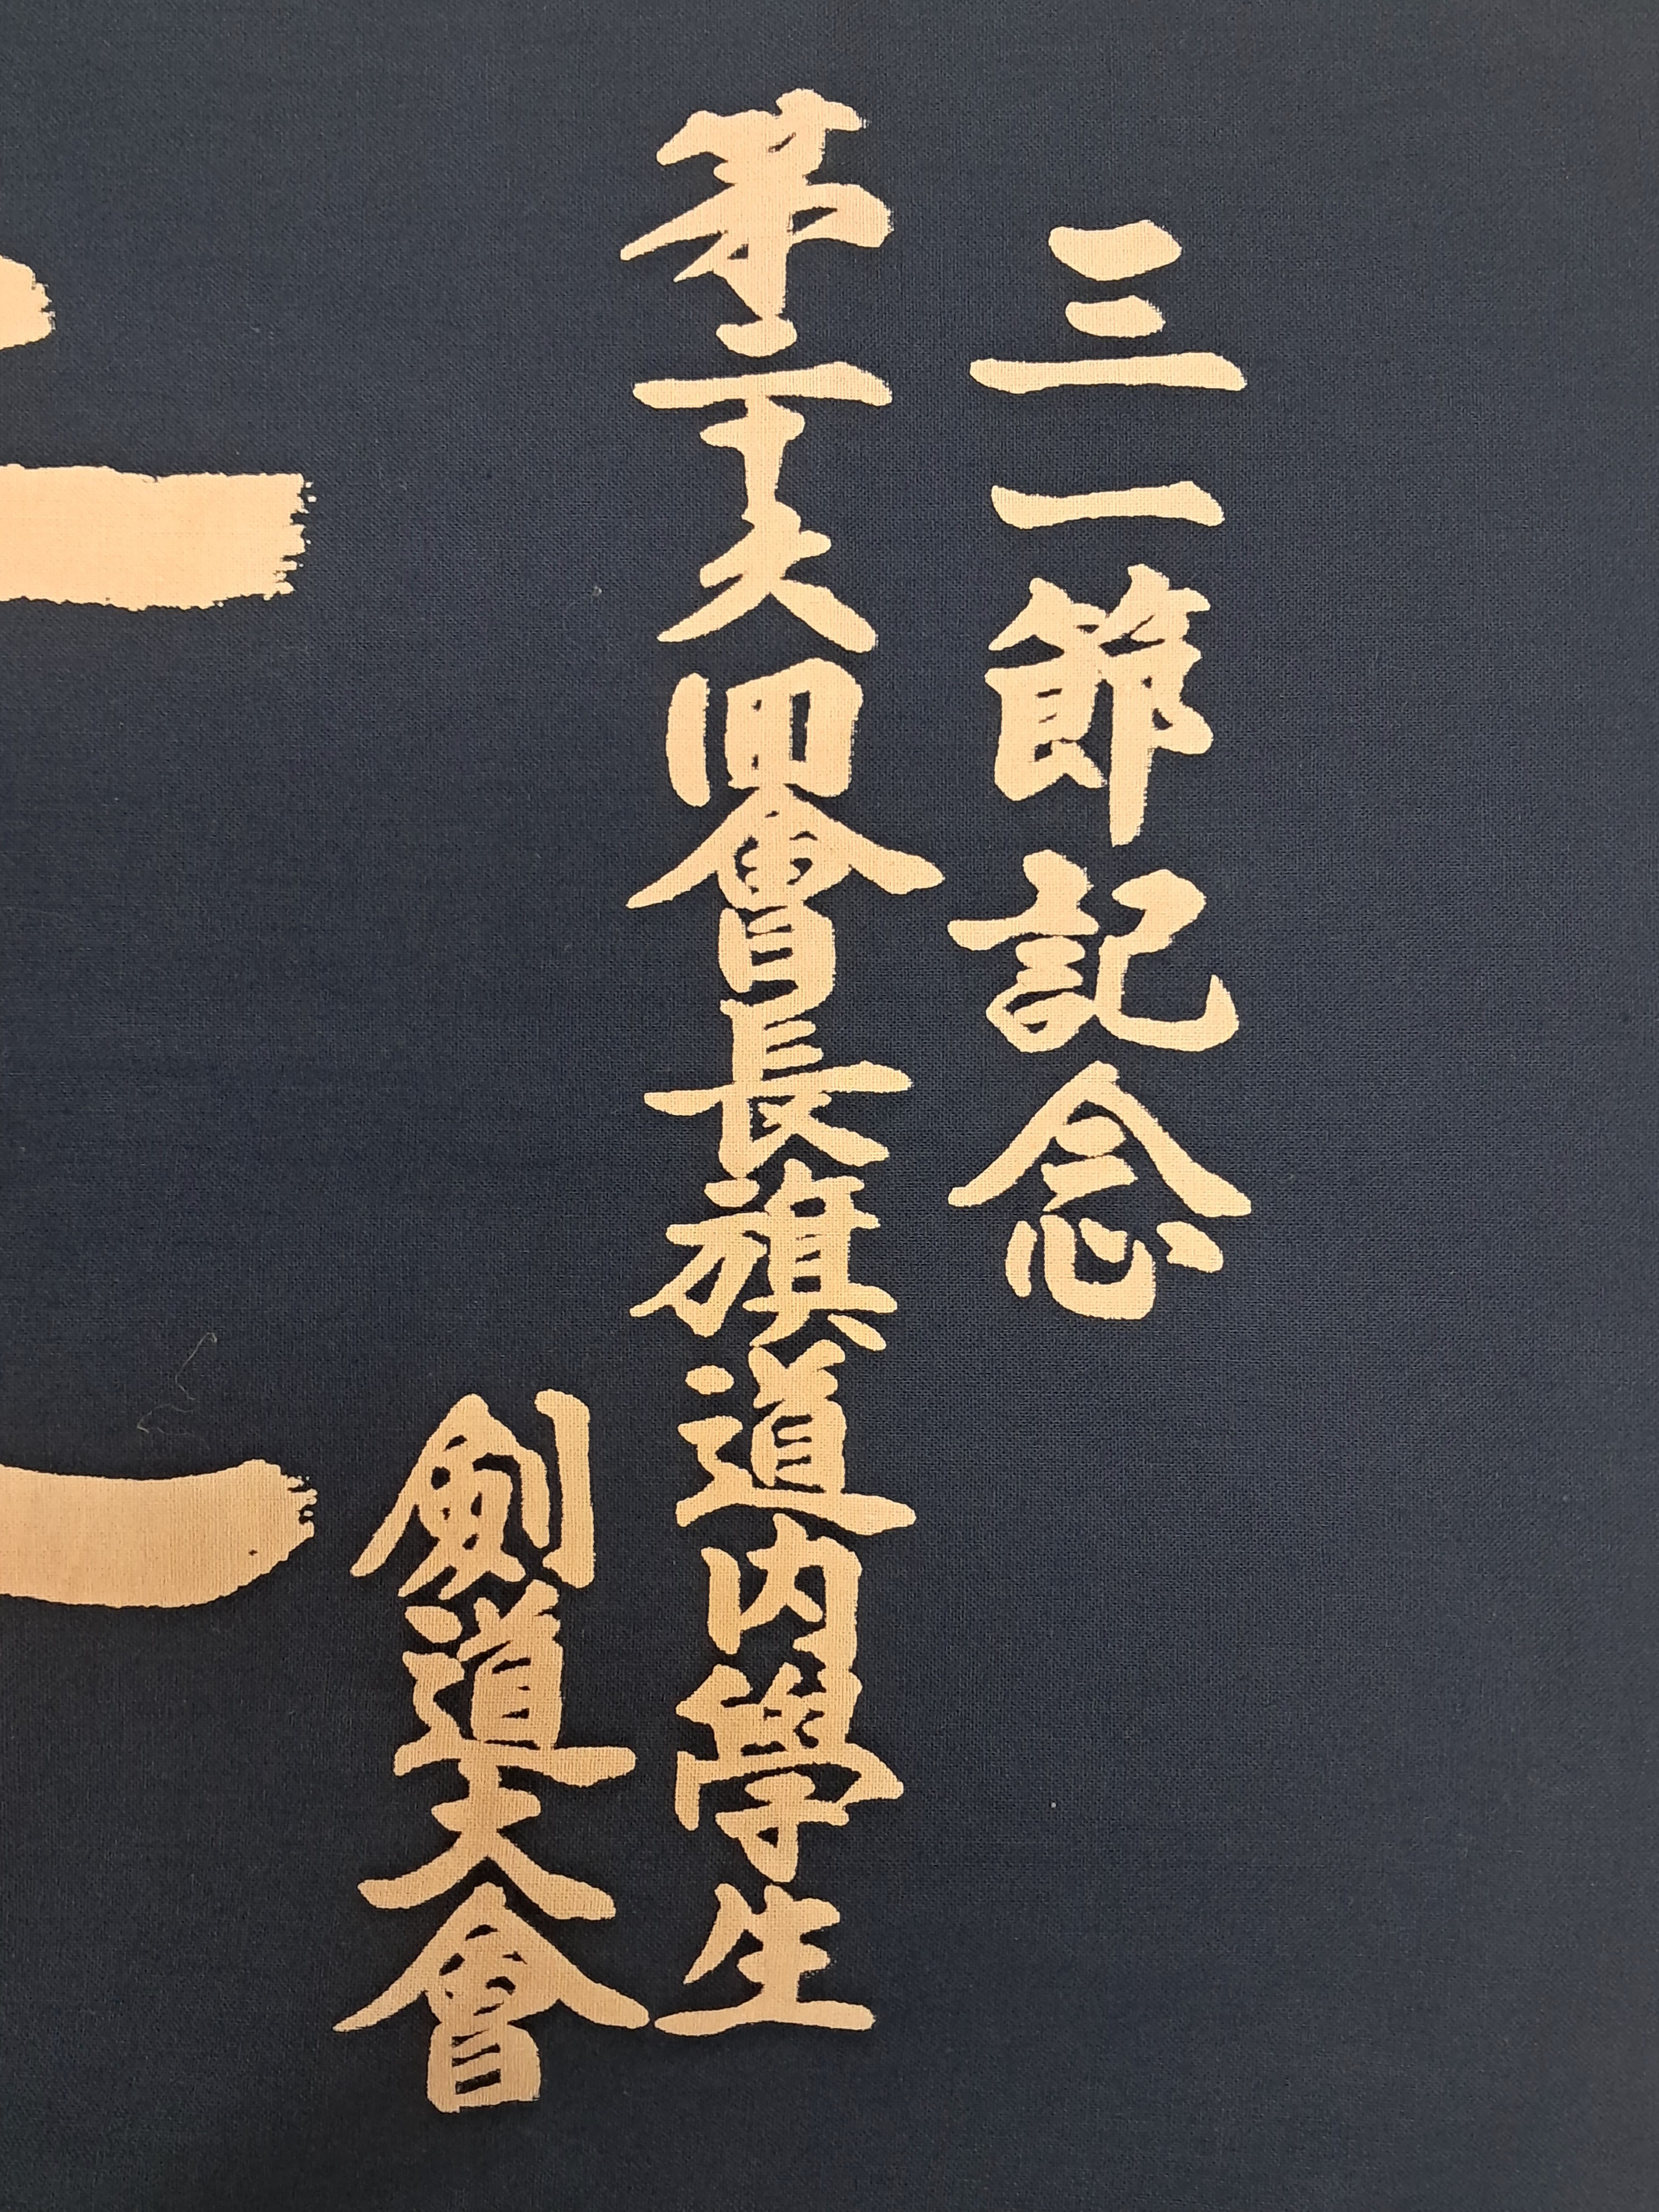 三一節記念
第二十六回會長旗道內學生
劍道大會